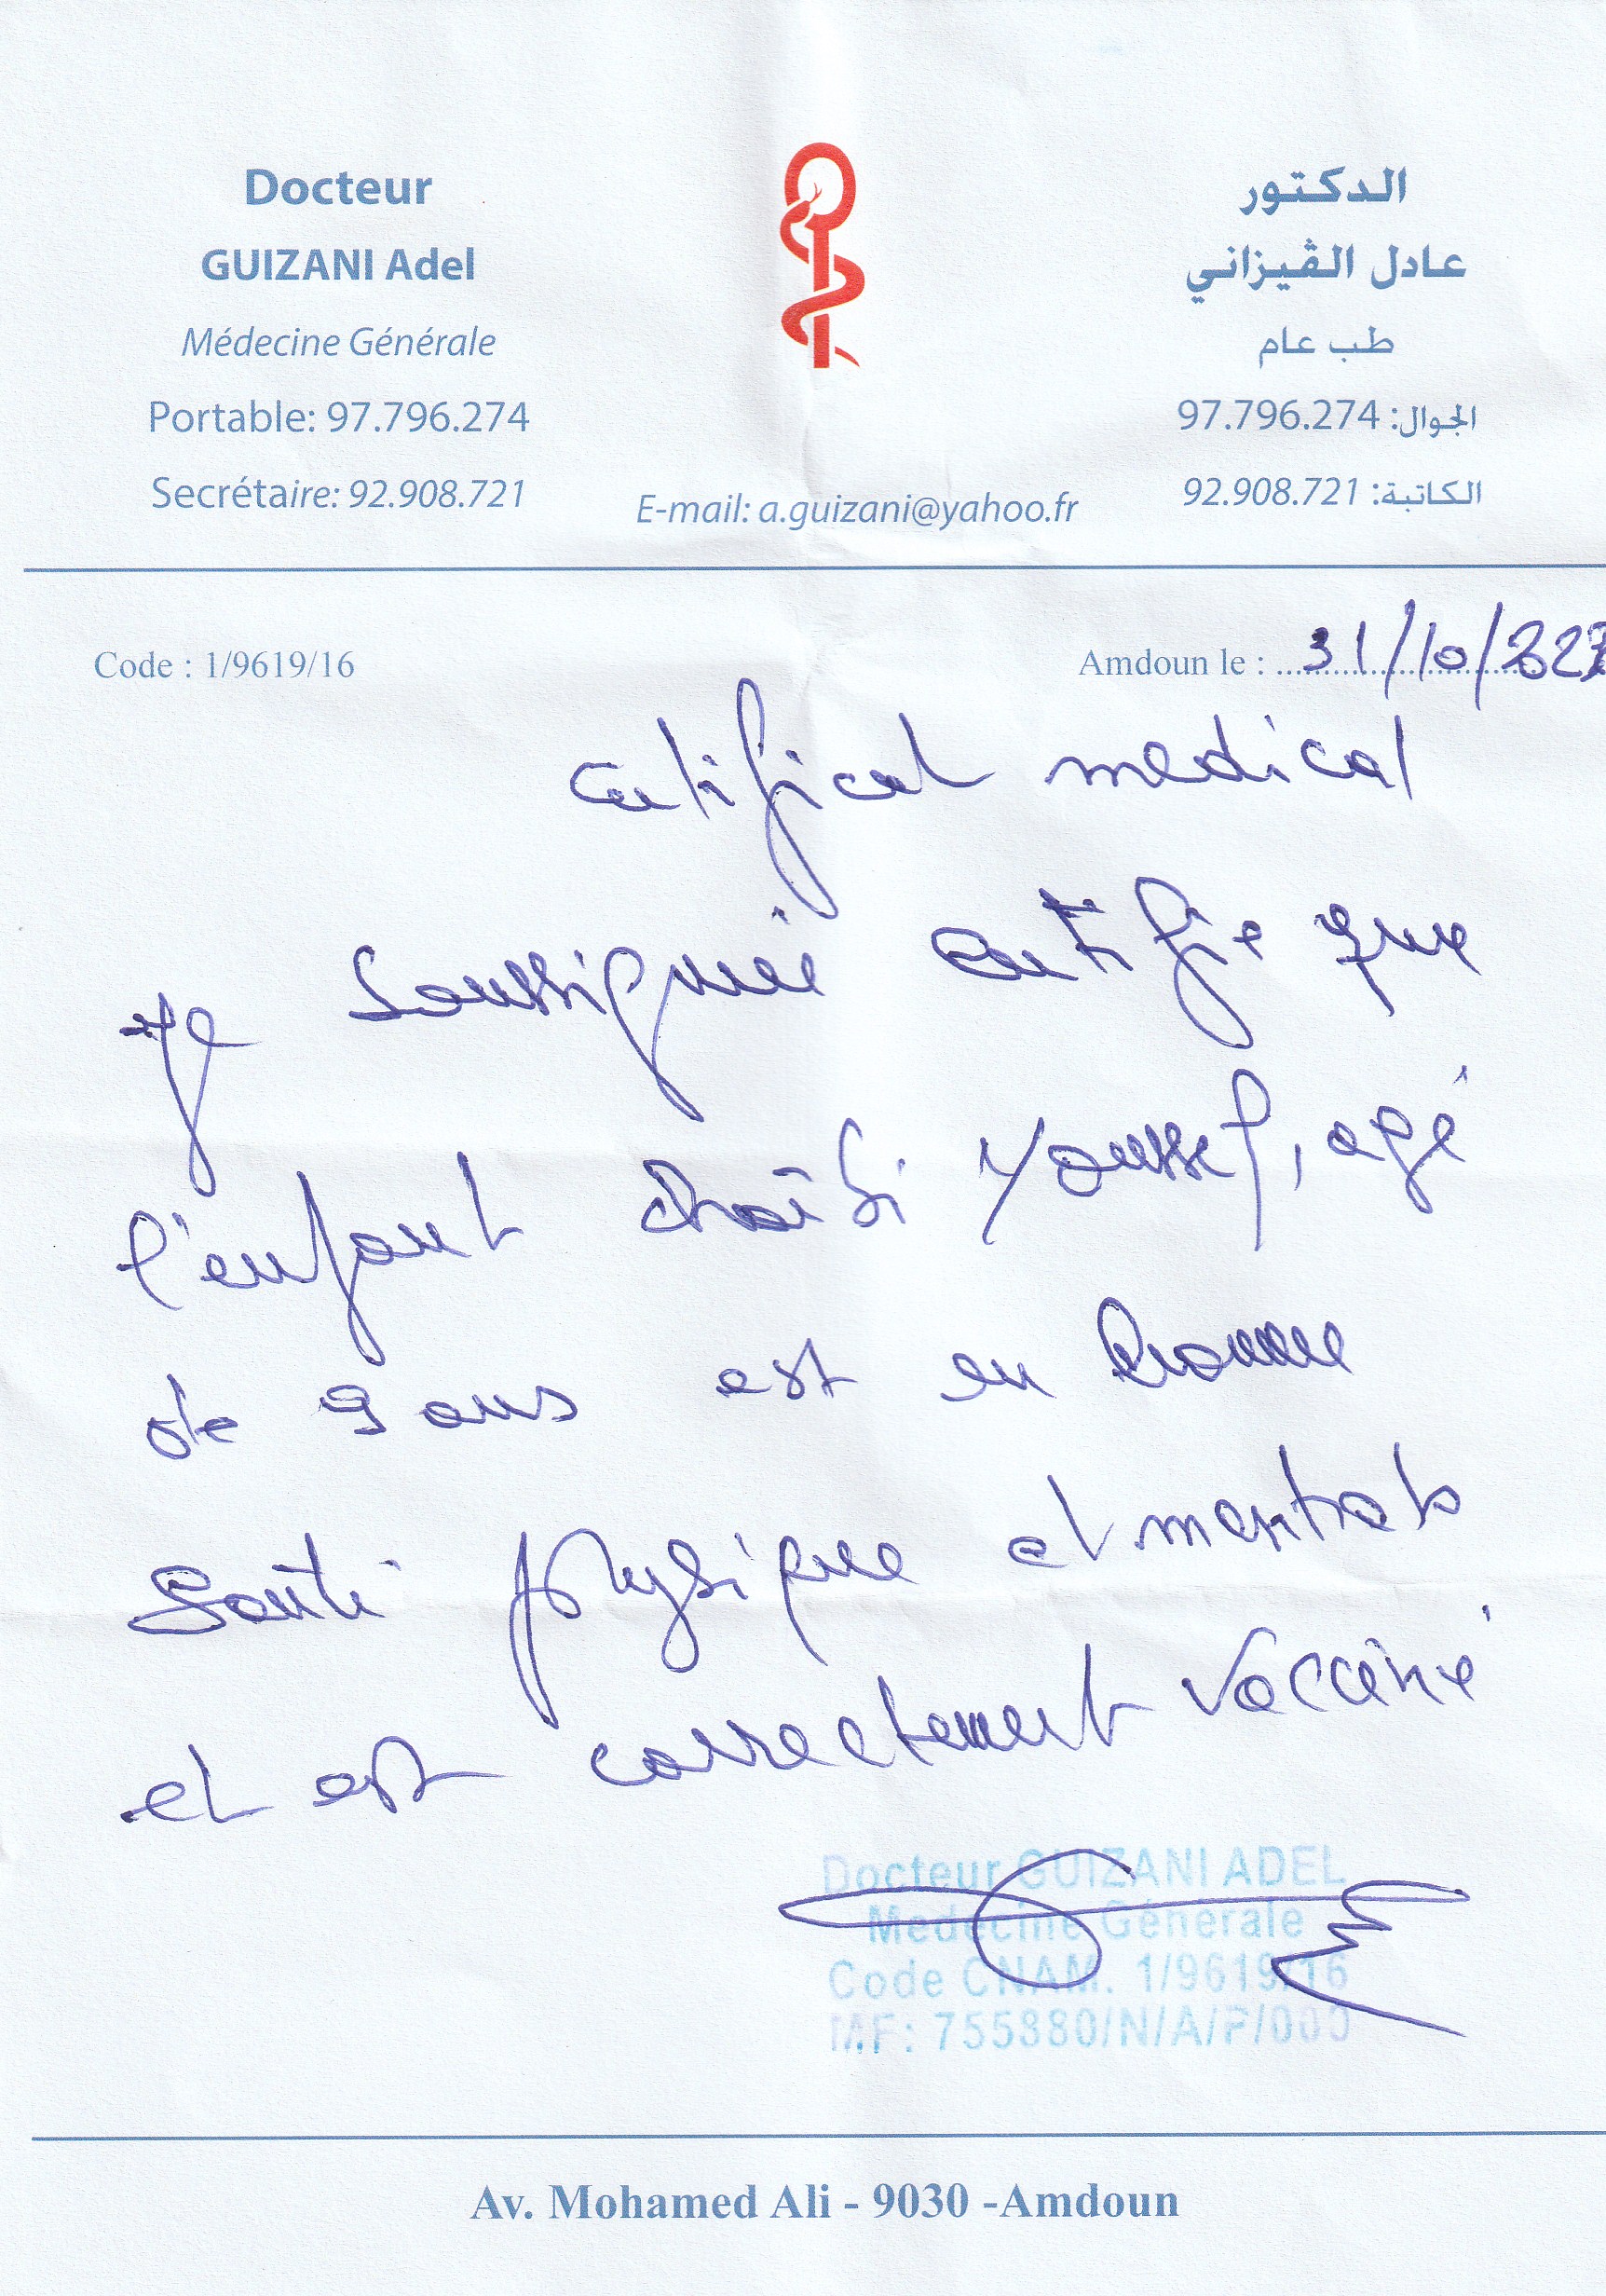 Docteur
GUIZANI Adel
Médecine Générale
Portable: 97.796.274
Secrétaire: 92.908.721
E-mail: a.guizani@yahoo.fr
الدكتور
عادل الڤيزاني
طب عام
الجوال: 97.796.274
الكاتبة: 92.908.721
Code : 1/9619/16
Amdoun le : 31/10/
Certificat medical
Je soussigné certifie que
l'enfant Youssef, agé
de 9 ans est en bonne
Santé physique et mentale
et est correctement vacciné
Docteur GUIZANI ADEL
Medecine Générale
Code CNAM. 1/9619/16
MF: 755880/N/A/P/000
Av. Mohamed Ali - 9030 -Amdoun